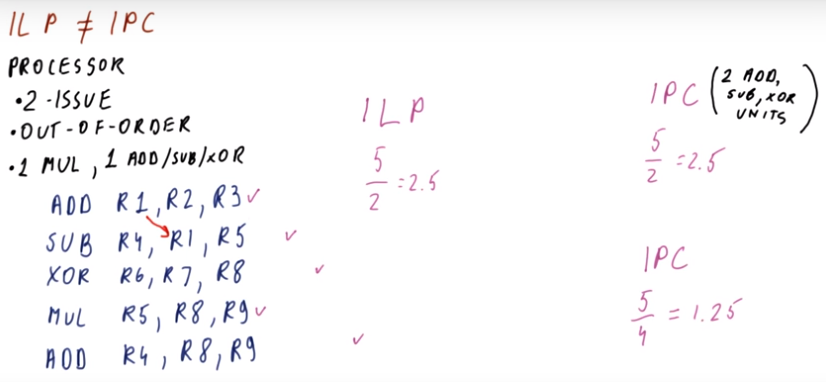 ILP ≠ IPC
PROCESSOR
• 2-ISSUE
• OUT-OF-ORDER
• 1 MUL, 1 ADD/SUB/XOR
ADD R1, R2, R3 ✓
SUB R4, R1, R5 ✓
XOR R6, R7, R8 ✓
MUL R5, R8, R9 ✓
ADD R4, R8, R9 ✓
ILP
5/2 = 2.5
IPC (2 ADD, SUB, XOR UNITS)
5/2 = 2.5
IPC
5/4 = 1.25